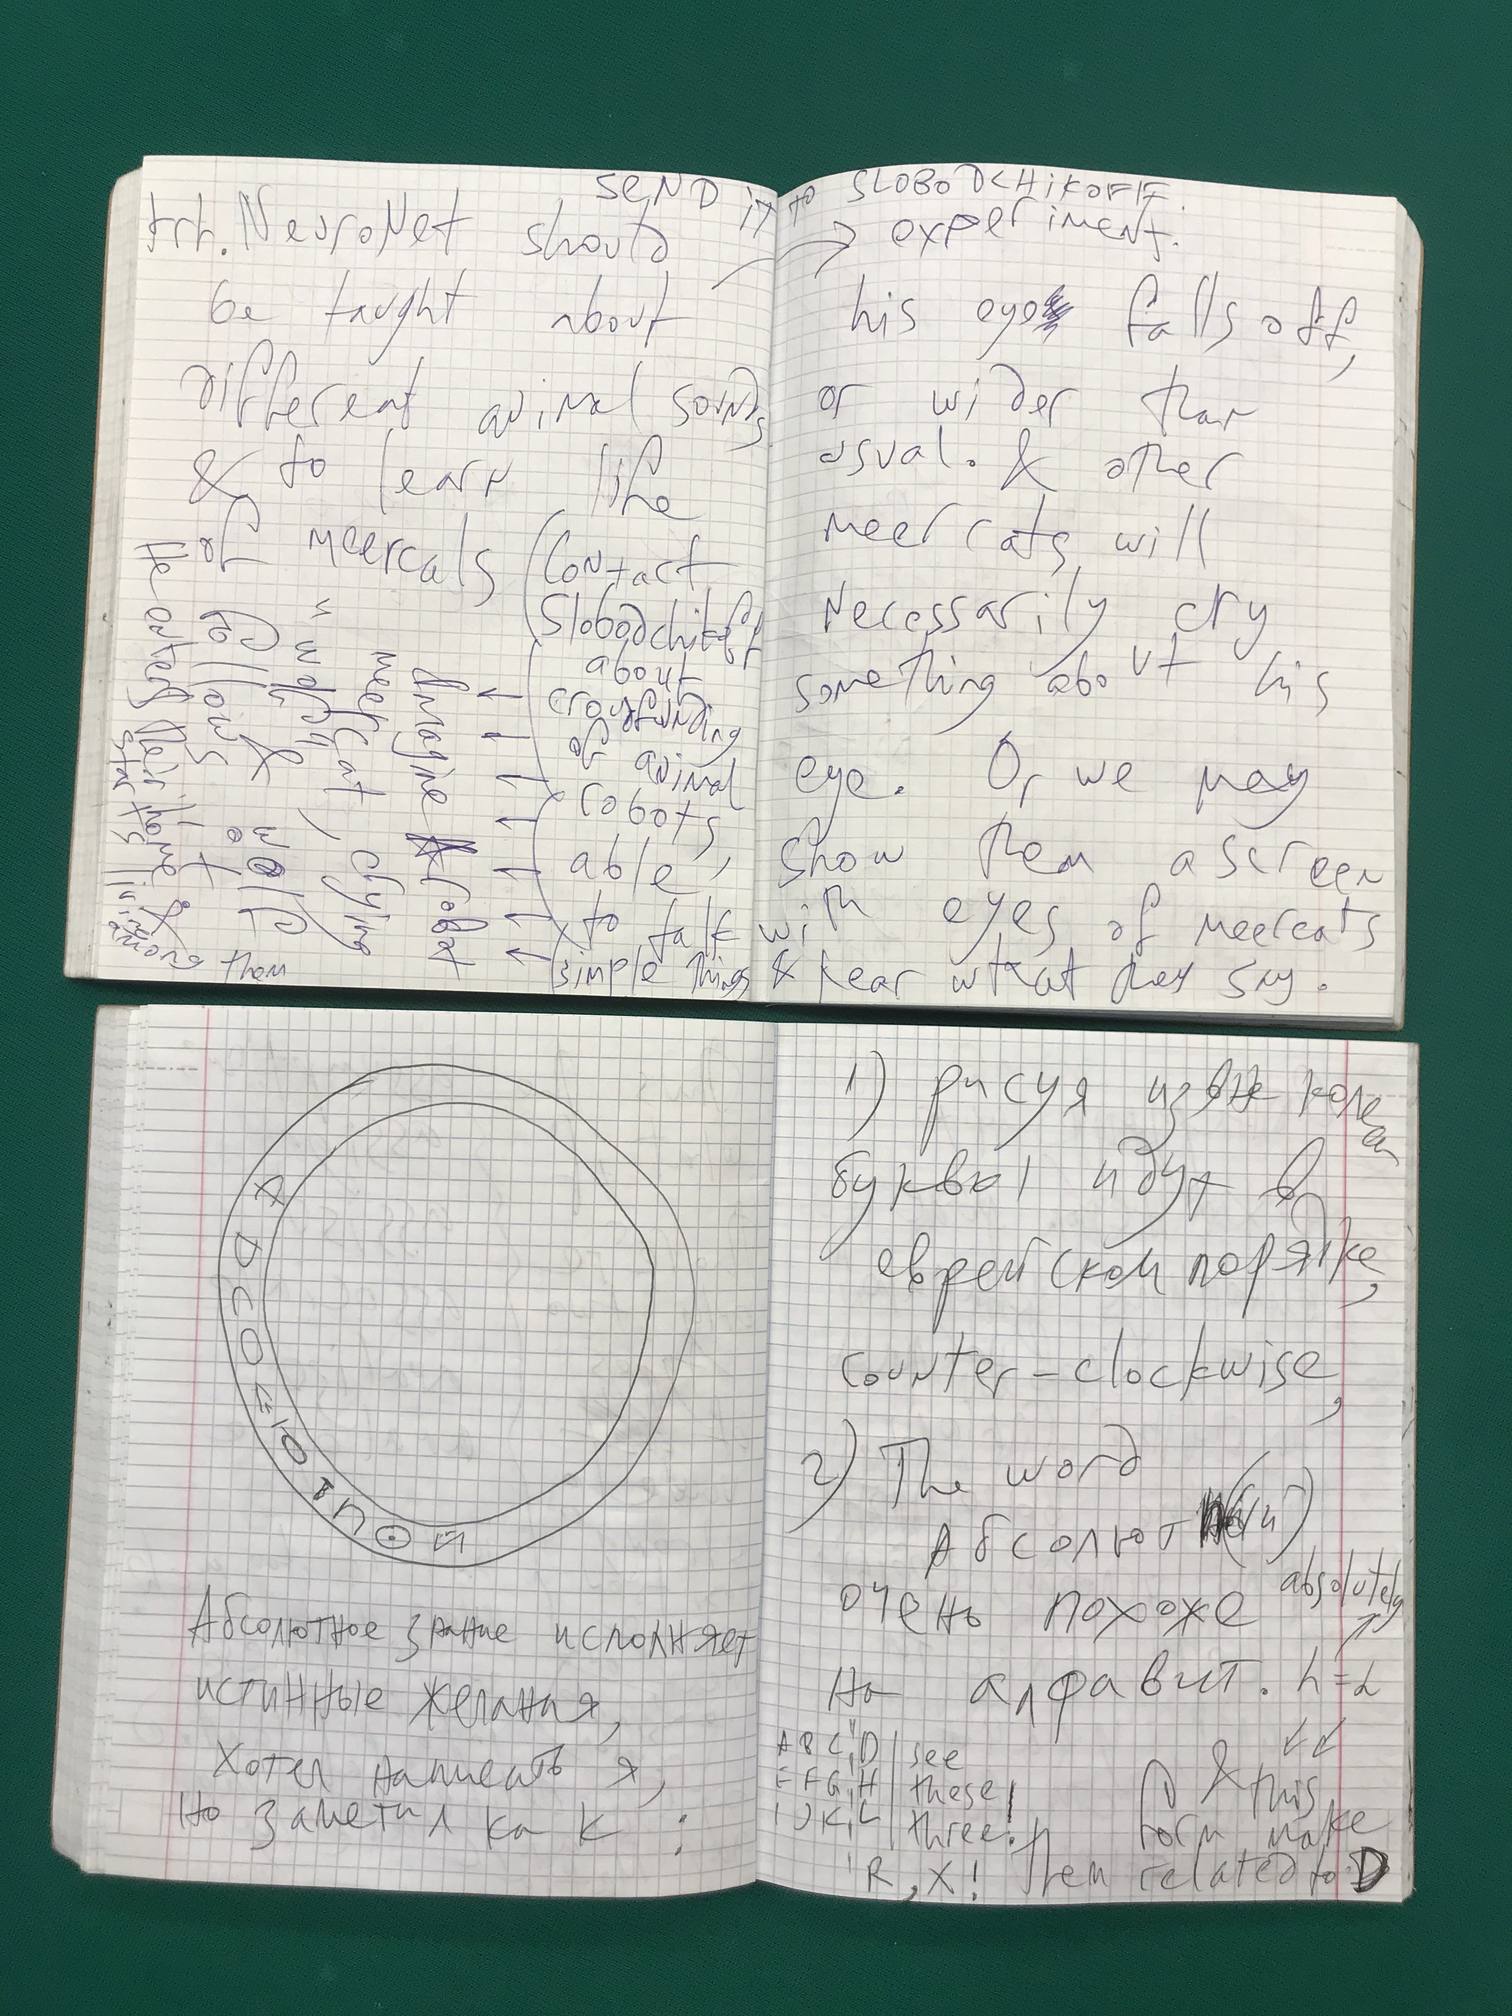 SEND it to SLOBODCHIKOFF.
NeuroNet should
be taught about
different animal sounds
& to learn life
of meercats
(Contact
Slobodchikoff
about
croudfunding
of animal
robots,
able,
to talk
simple things
Imagine robot
meercat, crying
"wolf" & no wolf
follows it.
He enters their home &
starts living
among them
→ experiment.
his eye falls off,
or wider than
usual. & other
meercats will
necessarily cry
something about his
eye. Or we may
show them a screen
with eyes of meercats
& hear wthat they say.
Абсолютное знание исполняет
истинные желания,
хотел написать я,
но заметил как :
1) рисуя извне колеса
буквы идут в
еврейском порядке,
counter-clockwise,
2) The word
Абсолют (ный)
очень похоже absolutely
на алфавит. h=L
A B C D | see
E F G H | these
I J K L | three!
R, X!
& this
form make
them related to D